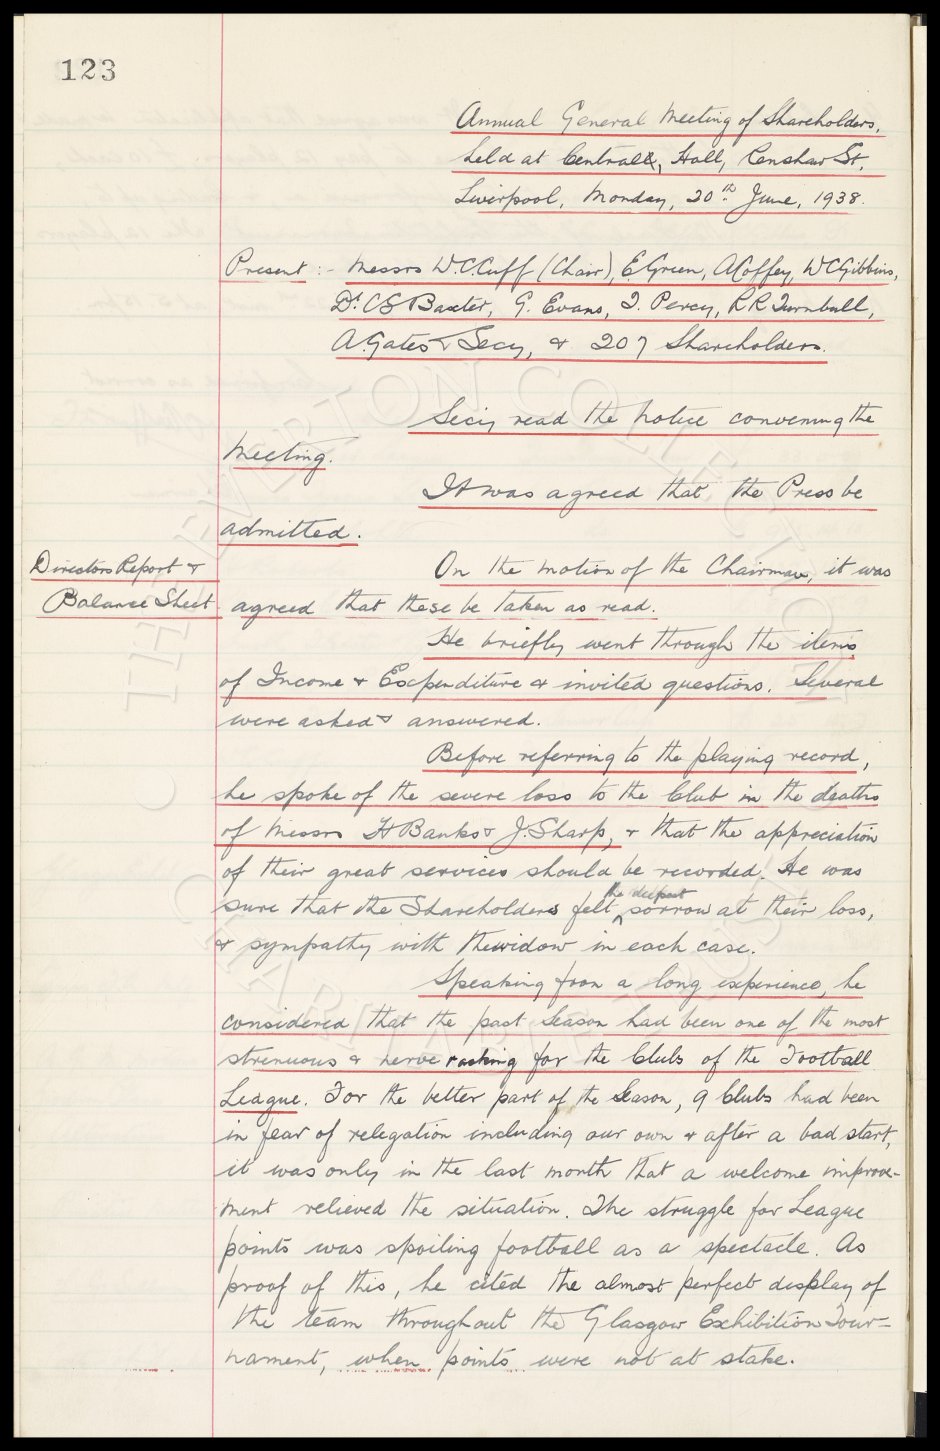 123
Annual General Meeting of Shareholders,
held at Central, Hall, Renshaw St,
Liverpool, Monday, 20th June, 1938.
Present :- Messrs W.C.Cuff (Chair), E.Green, A.Coffey, W C Gibbins,
Dr. C S Baxter, G. Evans, T. Percy, R R Turnbull,
A.Gates & Secy, & 207 Shareholders.
Secy read the Notice convening the
Meeting.
It was agreed that the Press be
admitted.
Directors Report &
Balance Sheet
On the motion of the Chairman, it was
agreed that these be taken as read.
He briefly went through the items
of Income & Expenditure & invited questions. Several
were asked & answered.
Before referring to the playing record,
he spoke of the severe loss to the Club in the deaths
of Messrs H Banks & J. Sharp, & that the appreciation
of their great services should be recorded. He was
sure that the Shareholders felt the deepest sorrow at their loss,
& sympathy with the widow in each case.
Speaking from a long experience, he
considered that the past Season had been one of the most
strenuous & nerve racking for the Clubs of the Football
League. For the better part of the Season, 9 Clubs had been
in fear of relegation including our own & after a bad start,
it was only in the last month that a welcome improve-
ment relieved the situation. The struggle for League
points was spoiling football as a spectacle. As
proof of this, he cited the almost perfect display of
the team throughout the Glasgow Exhibition Tour-
nament, when points were not at stake.
THE EVERTON COLLECTION
CHARITABLE TRUST